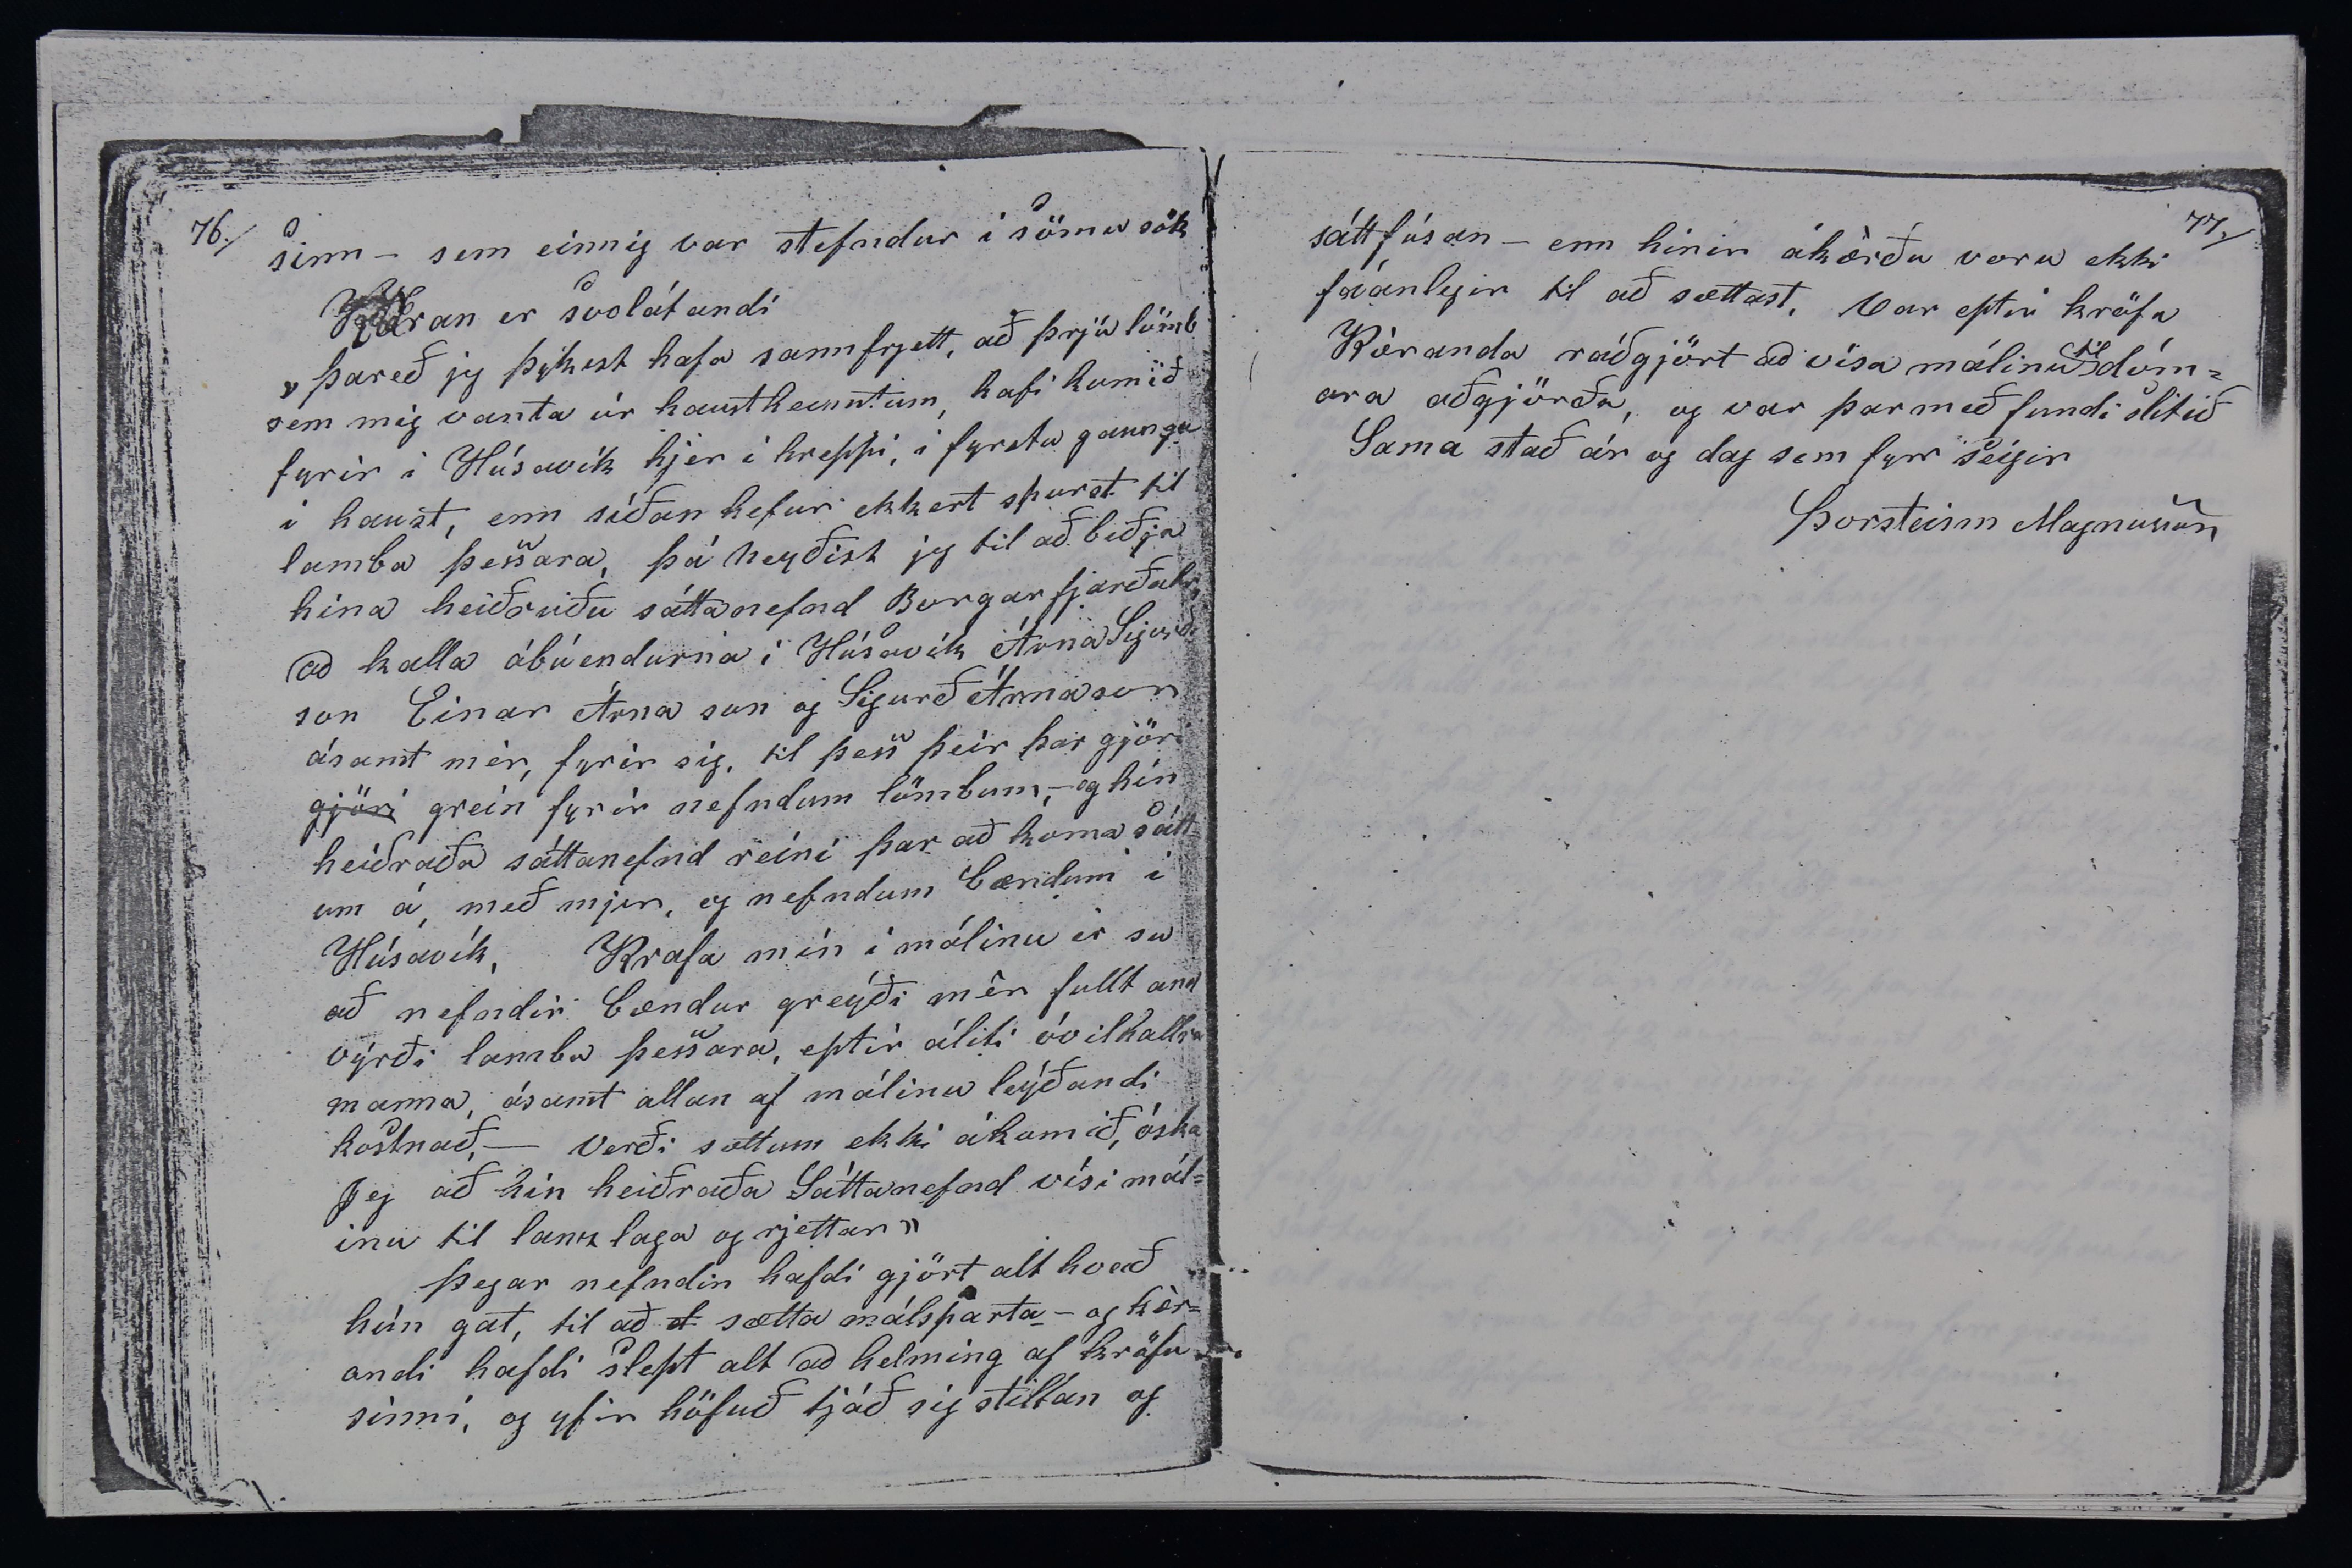 76./
sinn - sem einnig var stefndur i sömu sök
Kèran er svolátandi
„ þareð jeg þýkest hafa sannfrjett, að þrjú lömb
sem mig vanta úr haustheimtum, hafi kumið
fyrir i Húsavík hjer i hreppi, i fyrstu gaungu
i haust, enn síðan hefur ekkert spurst til
lamba þessara, þá neyðist jeg til að biðja
hina heiðruðu sáttanefnd Borgarfjarðahr,
að kalla ábúendurna i Húsavík Árna Sigurðs
son Einar Árna son og Sigurð Árnason
ásamt mèr, fyrir sig, til þess þeir þar gjöri
gjöri grein fyrir nefndum lömbum, - og hin
heiðraða sáttanefnd reini þar að koma sátt
um á, með mjer, og nefndum bændum i
Húsavík, Krafa mín i málinu er su
að nefndir bændur greýði mèr fullt and
výrði lamba þessara, eptir áliti óvilhallra
manna, ásamt allan af málinu leýðandi
kostnað, - Verði sættum ekki ákomið, óska
Jeg að hin heiðraða Sáttanefnd vísi mál=
inu til lanz laga og rjettar"
Þegar nefndin hafdi gjört alt hvað
hún gat, til að st sætta málsparta - og kèr=
andi hafdi slept alt að helming af kröfu
sinni, og yfir höfuð tjáð sig stiltan og
77,/
sáttfúsan - enn hinir ákèrðu voru ekki
fáanlegir til að sættast, Var eptir kröfu
Kèranda ráðgjört að vísa málinu til dóm=
ara aðgjörða, og var þarmeð fundi slitið
Sama stað ár og dag sem fyrr seigir
Þorsteinn Magnusson,